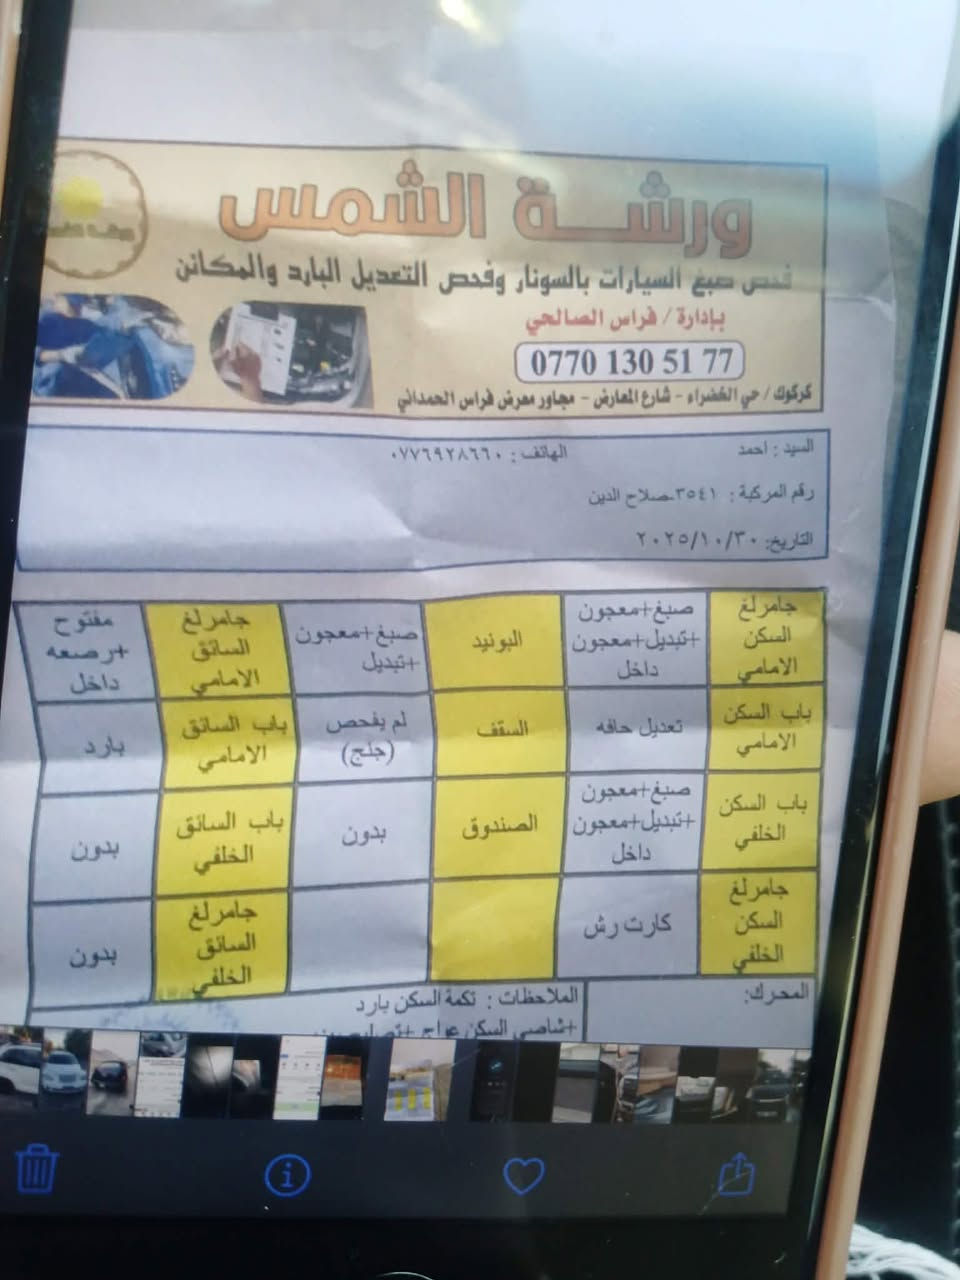 ورشة الشمس
فحص صبغ السيارات بالسونار وفحص التعديل البارد والمكائن
بإدارة / فراس الصالحي
0770 130 51 77
كركوك / حي الخضراء - شارع المعارض - مجاور معرض فراس الحمداني
السيد : احمد الهاتف : ٠٧٧٦٩٢٨٦٦٠
رقم المركبة : ٣٥٤١-صلاح الدين
التاريخ: ٢٠٢٥/١٠/٣٠
جامرلغ السكن الامامي
صبغ+معجون +تبديل+معجون داخل
البونيد
صبغ+معجون +تبديل
جامرلغ السائق الامامي
مفتوح +رصعه داخل
باب السكن الامامي
تعديل حافه
السقف
لم يفحص (جلج)
باب السائق الامامي
بارد
باب السكن الخلفي
صبغ+معجون +تبديل+معجون داخل
الصندوق
بدون
باب السائق الخلفي
بدون
جامرلغ السكن الخلفي
كارت رش
جامرلغ السائق الخلفي
بدون
المحرك:
الملاحظات : تكمة السكن بارد
+شاصي السكن